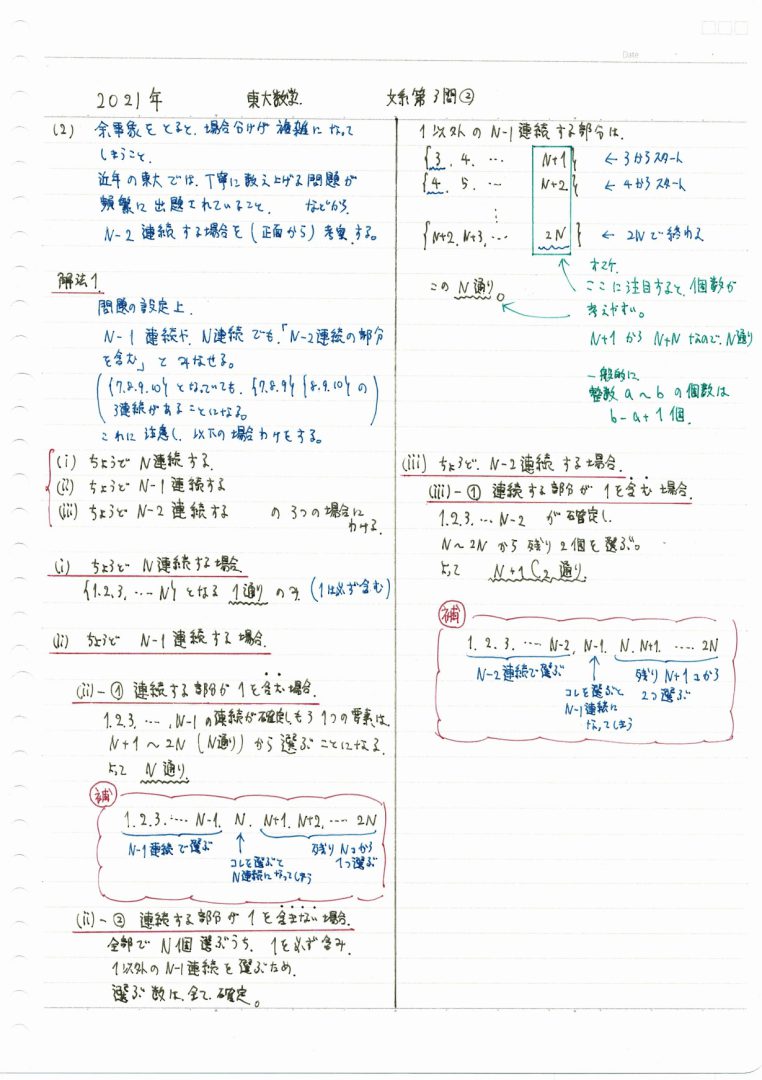 Date
2021年 東大数学. 文系第3問②
(2) 余事象をとると、場合分けが複雑になって
しまうこと、
近年の東大では、丁寧に数え上げる問題が
頻繁に出題されていること、 などから、
N-2 連続する場合を(正面から)考察する。
解法1.
問題の設定上、
N-1 連続や、N連続でも、「N-2連続の部分
を含む」とみなせる。
({7.8.9.10}となっていても、{7.8.9}{8.9.10}の
3連続があることになる。)
これに注意し、以下の場合分けをする。
(i) ちょうど N連続する.
(ii) ちょうど N-1 連続する
(iii) ちょうど N-2 連続する の3つの場合に
わける.
(i) ちょうど N連続する場合
{1.2.3. … N} となる 1通り のみ (1は必ず含む)
(ii) ちょうど N-1 連続する場合.
(ii)-① 連続する部分が1を含む場合.
1.2.3. …, N-1 の連続が確定しもう1つの要素は
N+1 ~ 2N (N通り) から選ぶことになる.
よって N通り.
補
1.2.3. … N-1. N. N+1. N+2. … 2N
N-1連続で選ぶ
コレを選ぶと
N連続になってしまう
残りNコから
1つ選ぶ
(ii)-② 連続する部分が1を含まない場合.
全部で N個選ぶうち、1を必ず含み、
1以外のN-1連続を選ぶため、
選ぶ数は、全て、確定。
1以外の N-1 連続する部分は、
{3. 4. … N+1} ← 3からスタート
{4. 5. … N+2} ← 4からスタート
⋮
{N+2. N+3. … 2N} ← 2Nで終わる
この N通り。
オマケ.
ここに注目すると、個数が
考えやすい。
N+1 から N+N なので、N通り
一般的に
整数 a~b の個数は
b-a+1 個.
(iii) ちょうど、N-2連続する場合.
(iii)-① 連続する部分が1を含む場合.
1.2.3. … N-2 が確定し、
N~2N から残り2個を選ぶ。
よって N+1C2 通り.
補
1. 2. 3. … N-2. N-1. N. N+1. … 2N
N-2連続で選ぶ
コレを選ぶと
N-1連続に
なってしまう
残りN+1コから
2つ選ぶ